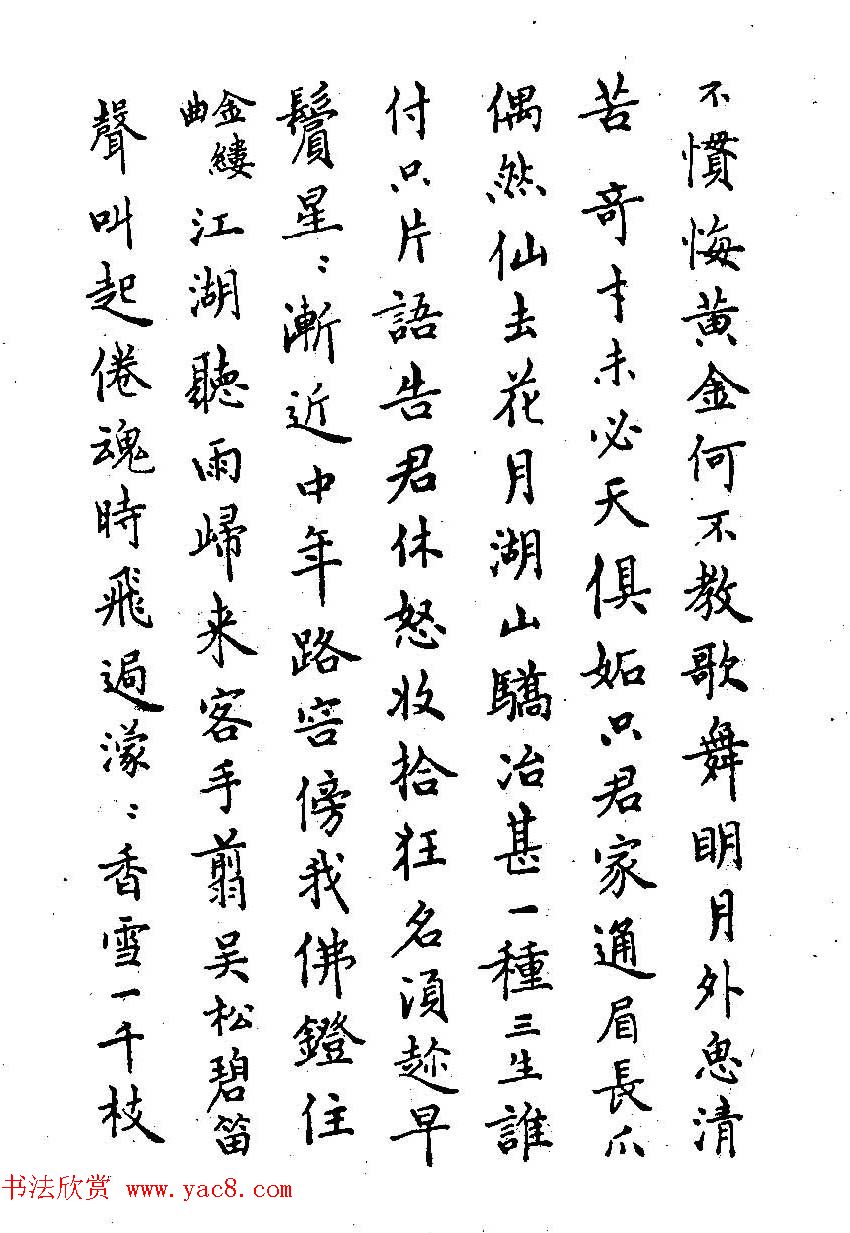 不慣悔黃金何不教歌舞明月外思清
苦 奇才未必天俱妬只君家通眉長爪
偶然仙去花月湖山驕冶甚一種三生誰
付只片語告君休怒收拾狂名須趁早
鬢星〻漸近中年路容傍我佛鐙住
金縷曲
江湖聽雨歸来客手翦吴松碧笛
聲叫起倦魂時飛過濛〻香雪一千枝
书法欣赏 www.yac8.com